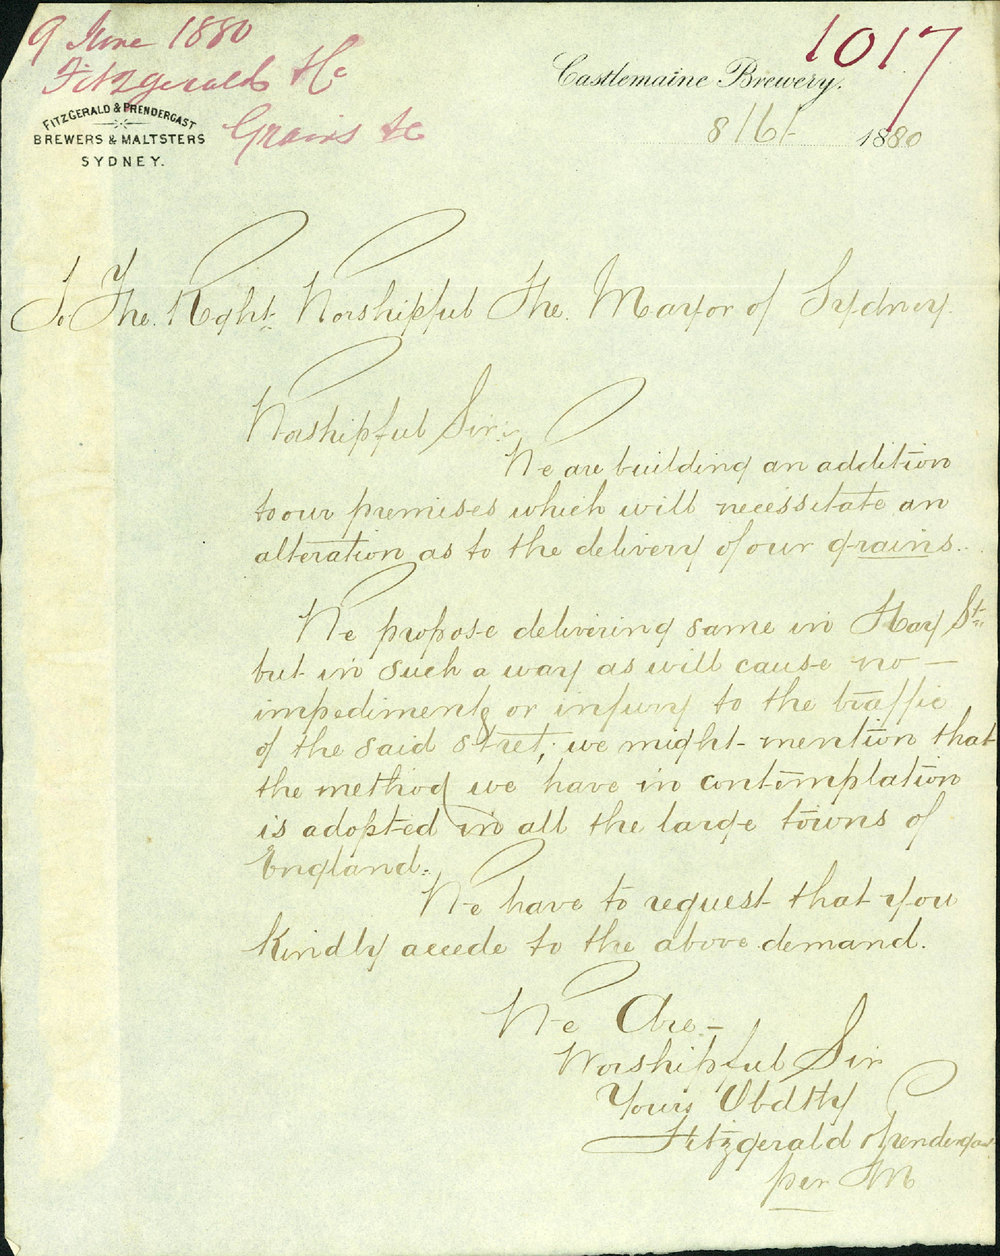 9 June 1880
1017
Fitzgerald & Co
Grains &c
FITZGERALD & PRENDERGAST
BREWERS & MALTSTERS
SYDNEY.
Castlemaine Brewery.
8/6/- 1880
To The Right Worshipful The Mayor of Sydney.
Worshipful Sir:
We are building an addition
to our premises which will necessitate an
alteration as to the delivery of our grains.
We propose delivering same in Hay St.
but in such a way as will cause no —
impediment or injury to the traffic
of the said street, we might mention that
the method we have in contemplation
is adopted in all the large towns of
England.
We have to request that you
kindly accede to the above demand.
We Are –
Worshipful Sir
Yours Obdtly
Fitzgerald & Prendergast
per